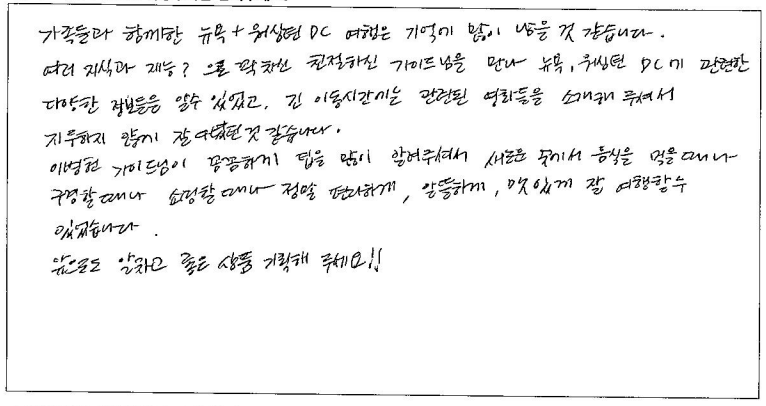 가족들과 함께한 뉴욕 + 워싱턴 DC 여행은 기억에 많이 남을 것 같습니다.
여러 지식과 재능? 으로 꽉차신 친절하신 가이드님을 만나 뉴욕, 워싱턴 DC에 관련한
다양한 정보들을 알수 있었고, 긴 이동시간에는 관련된 영화들을 소개해 주셔서
지루하지 않게 잘 것 같습니다.
이병헌 가이드님이 꼼꼼하게 팁을 많이 알려주셔서 새로운 음식을 먹을때나
구경할때나 쇼핑할때나 정말 편하게, 알뜰하게, 맛있게 잘 여행할수
있었습니다.
앞으로도 알차고 좋은 상품 기획해 주세요!!